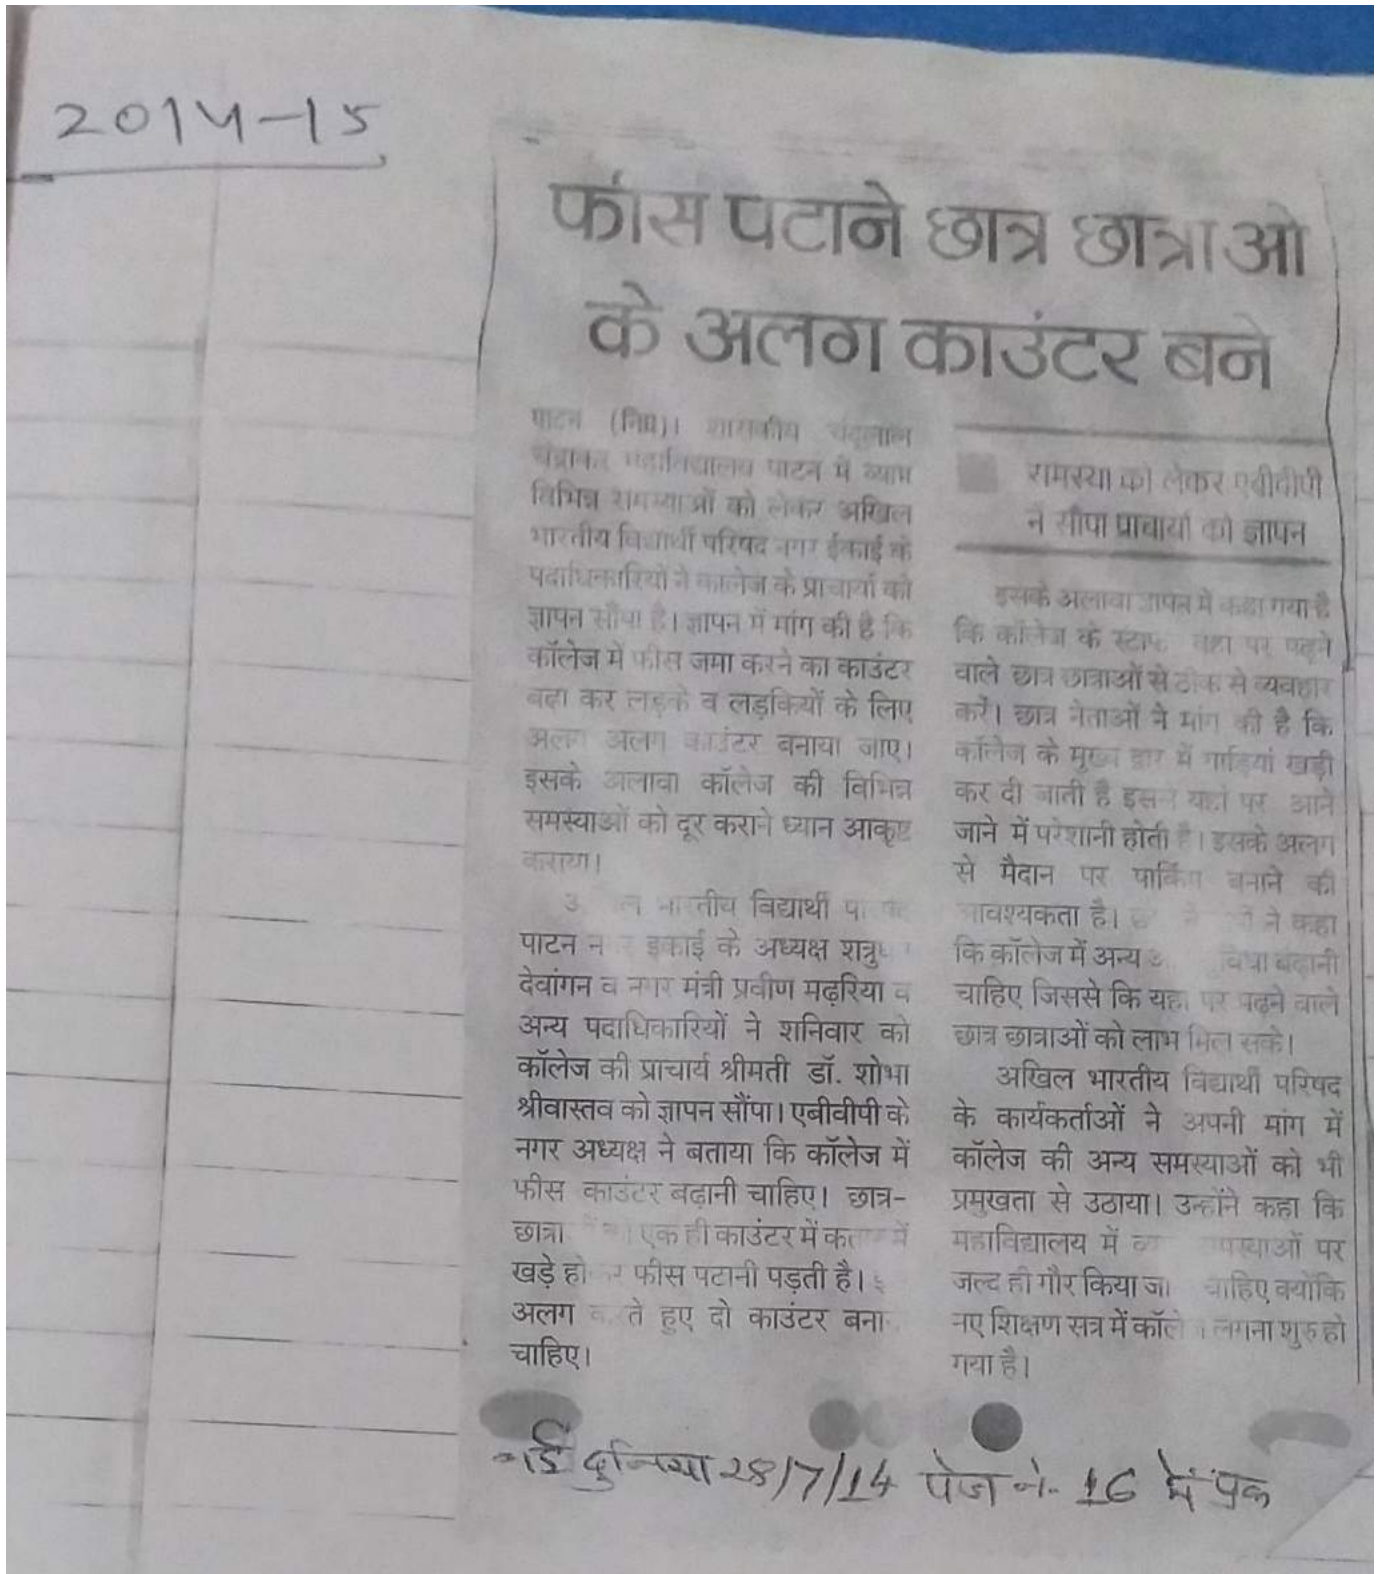 2014-15
फीस पटाने छात्र छात्राओ
के अलग काउंटर बने
पाटन (निप्र)। शासकीय चंदूलाल
चंद्राकर महाविद्यालय पाटन में व्याप्त
विभिन्न समस्याओं को लेकर अखिल
भारतीय विद्यार्थी परिषद नगर ईकाई के
पदाधिकारियों ने कालेज के प्राचार्या को
ज्ञापन सौंपा है। ज्ञापन में मांग की है कि
कॉलेज में फीस जमा करने का काउंटर
बढ़ा कर लड़के व लड़कियों के लिए
अलग अलग काउंटर बनाया जाए।
इसके अलावा कॉलेज की विभिन्न
समस्याओं को दूर कराने ध्यान आकृष्ट
कराया।
भारतीय विद्यार्थी
पाटन इकाई के अध्यक्ष
देवांगन व नगर मंत्री प्रवीण मढ़रिया व
अन्य पदाधिकारियों ने शनिवार को
कॉलेज की प्राचार्य श्रीमती डॉ. शोभा
श्रीवास्तव को ज्ञापन सौंपा। एबीवीपी के
नगर अध्यक्ष ने बताया कि कॉलेज में
फीस काउंटर बढ़ानी चाहिए। छात्र-
छात्रा एक ही काउंटर में कतार में
खड़े होकर फीस पटानी पड़ती है।
अलग करते हुए दो काउंटर
चाहिए।
समस्या को लेकर एबीवीपी
ने सौंपा प्राचार्या को ज्ञापन
इसके अलावा ज्ञापन में कहा गया है
कि कॉलेज के स्टाफ वहा पर पढ़ने
वाले छात्र छात्राओं से ठीक से व्यवहार
करें। छात्र नेताओं ने मांग की है कि
कॉलेज के मुख्य द्वार में गाड़ियां खड़ी
कर दी जाती है इससे यहां पर आने
जाने में परेशानी होती है। इसके अलग
से मैदान पर पार्किंग बनाने की
आवश्यकता है। ने कहा
कि कॉलेज में अन्य बढ़ानी
चाहिए जिससे कि यहा पर पढ़ने वाले
छात्र छात्राओं को लाभ मिल सके।
अखिल भारतीय विद्यार्थी परिषद
के कार्यकर्ताओं ने अपनी मांग में
कॉलेज की अन्य समस्याओं को भी
प्रमुखता से उठाया। उन्होंने कहा कि
महाविद्यालय में पर
जल्द ही गौर किया चाहिए क्योंकि
नए शिक्षण सत्र में लगना शुरु हो
गया है।
नई दुनिया 28/7/14 पेज नं. 16 में